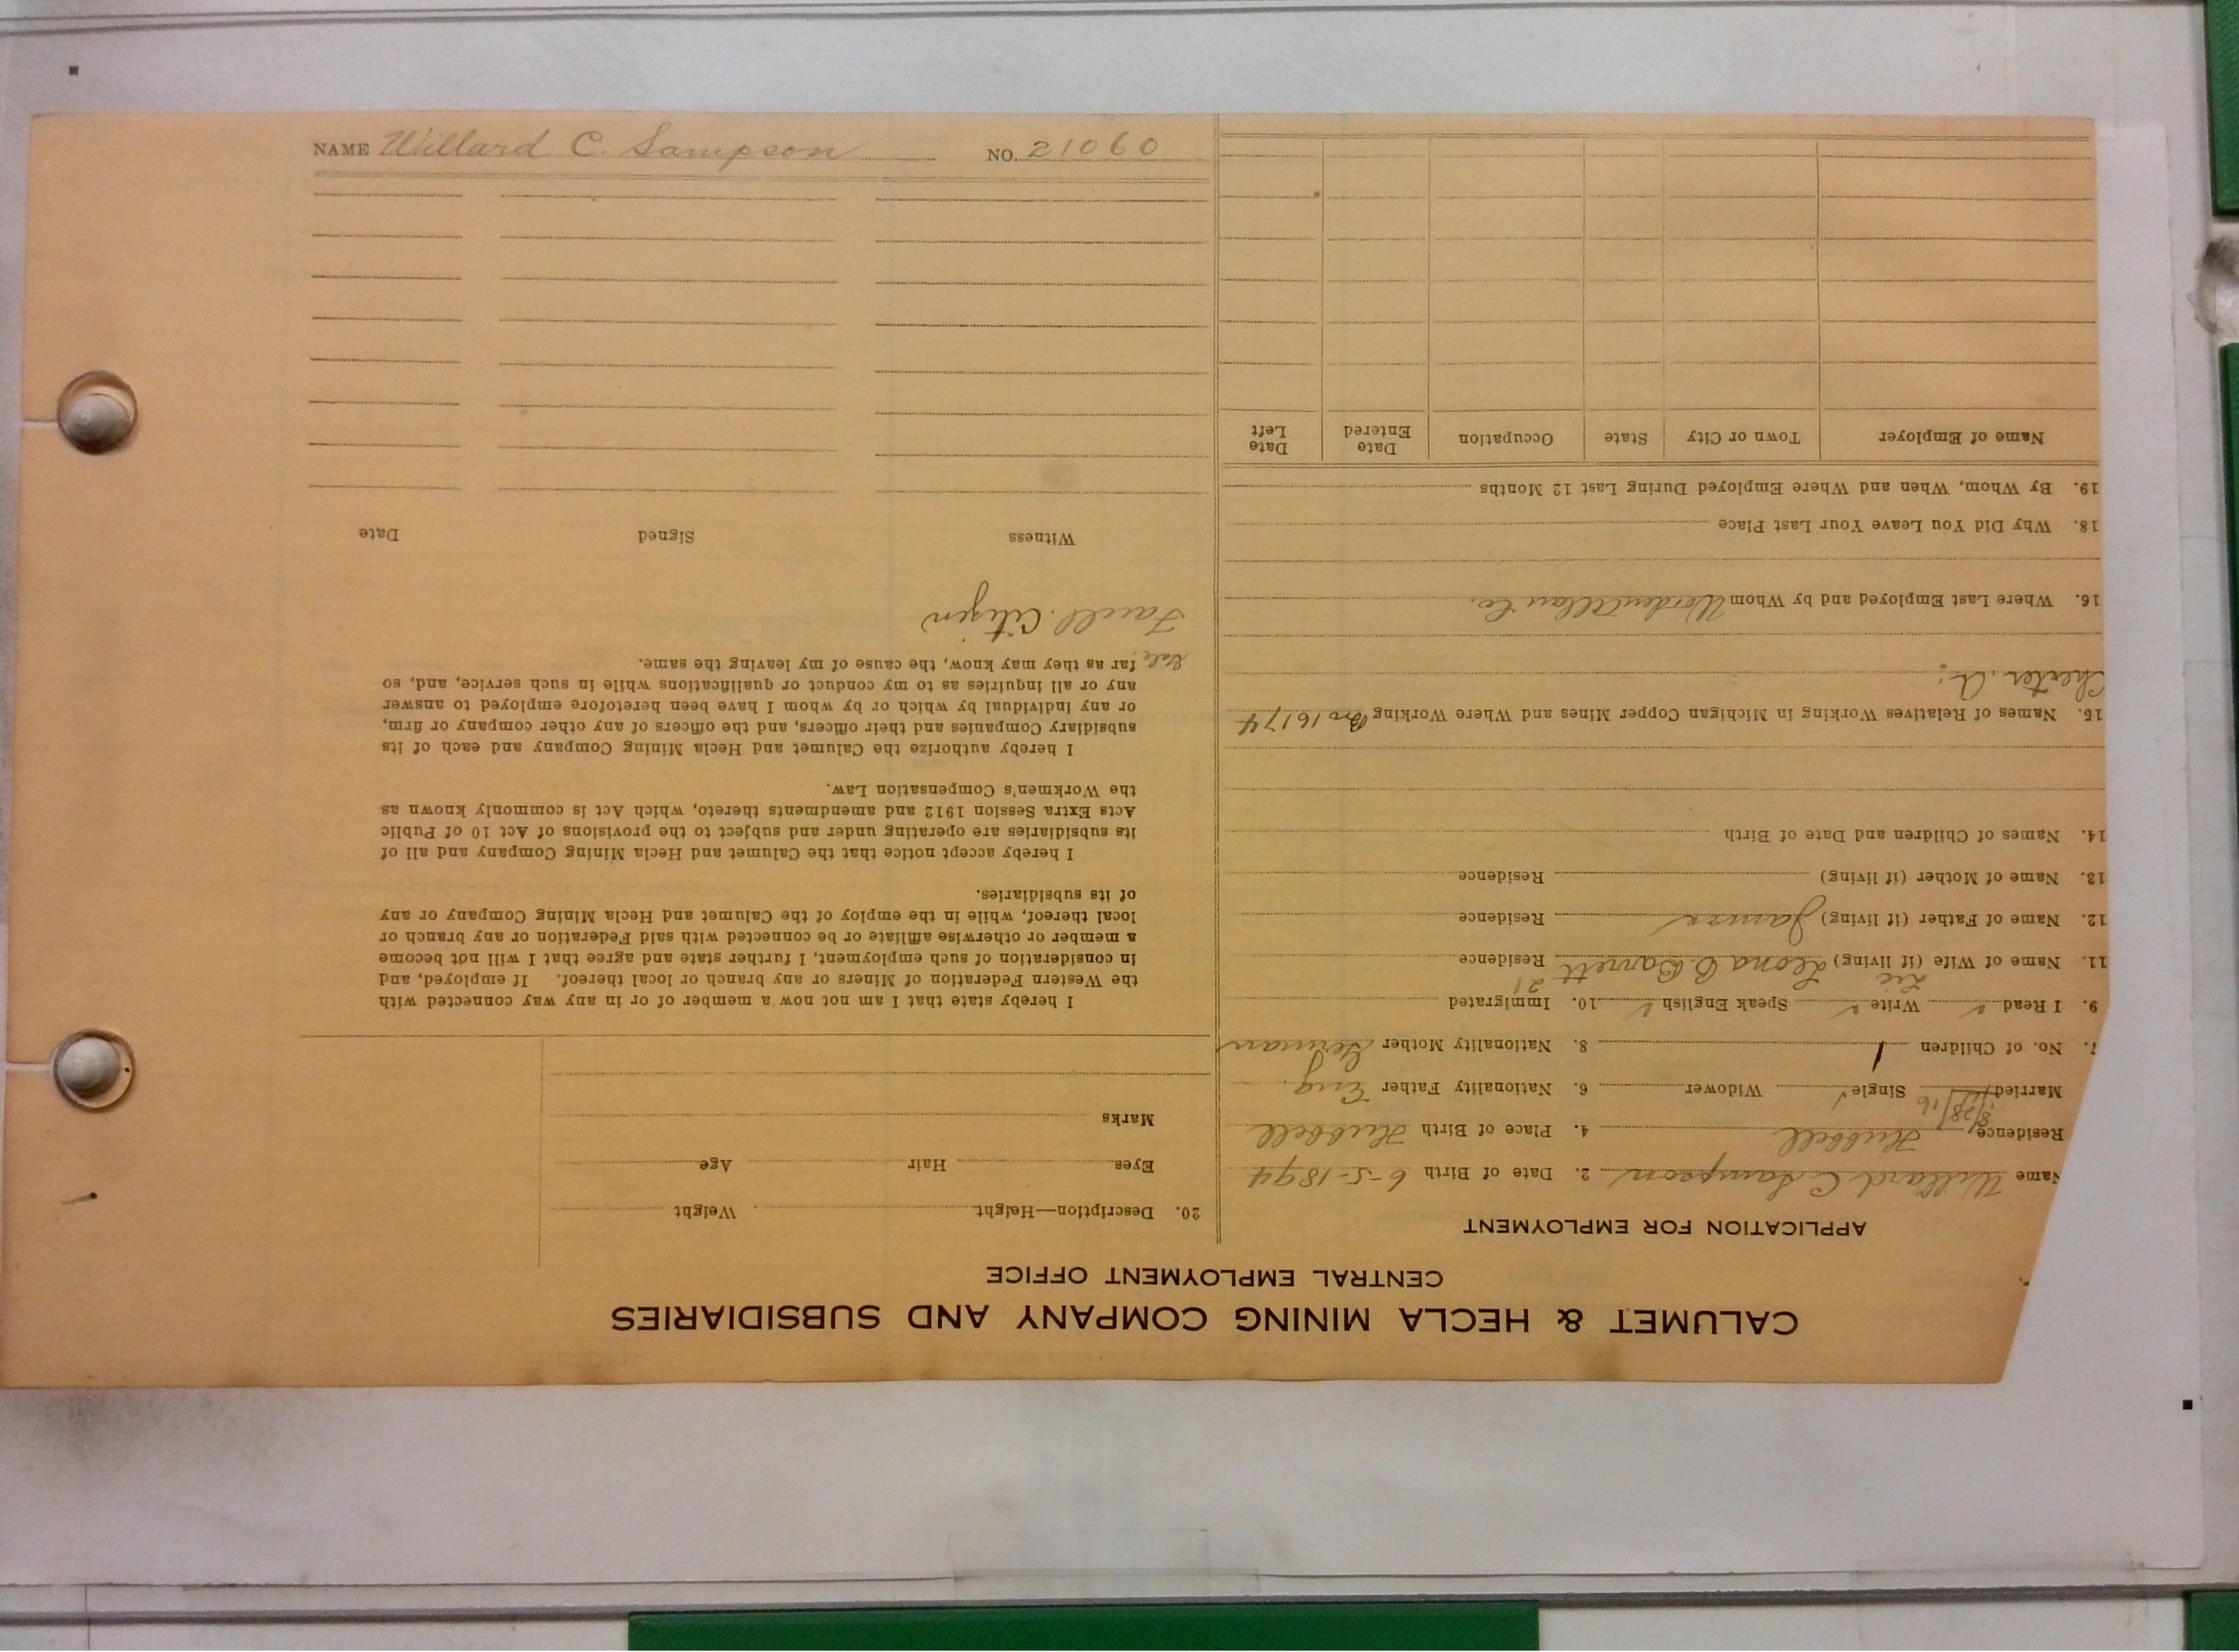 NAME Willard C. Sampson NO. 21060
CALUMET & HECLA MINING COMPANY AND SUBSIDIARIES
CENTRAL EMPLOYMENT OFFICE
APPLICATION FOR EMPLOYMENT
Name Willard C Sampson 2. Date of Birth 6-5-1894
Residence Hubbell 4. Place of Birth Hubbell
8/28/16
Married Single Widower 6. Nationality Father Eng.
7. No. of Children 1 8. Nationality Mother German
9. I Read ✓ Write ✓ Speak English ✓ 10. Immigrated
Lic 21
11. Name of Wife (if living) Leona B Barrett Residence
12. Name of Father (if living) James Residence
13. Name of Mother (if living) Residence
14. Names of Children and Date of Birth
15. Names of Relatives Working in Michigan Copper Mines and Where Working Bro 16174
Chester A.
16. Where Last Employed and by Whom Co.
18. Why Did You Leave Your Last Place
19. By Whom, When and Where Employed During Last 12 Months
Name of Employer Town or City State Occupation Date Entered Date Left
20. Description—Height Weight
Eyes Hair Age
Marks
I hereby state that I am not now a member of or in any way connected with
the Western Federation of Miners or any branch or local thereof. If employed, and
in consideration of such employment, I further state and agree that I will not become
a member or otherwise affiliate or be connected with said Federation or any branch or
local thereof, while in the employ of the Calumet and Hecla Mining Company or any
of its subsidiaries.
I hereby accept notice that the Calumet and Hecla Mining Company and all of
its subsidiaries are operating under and subject to the provisions of Act 10 of Public
Acts Extra Session 1912 and amendments thereto, which Act is commonly known as
the Workmen's Compensation Law.
I hereby authorize the Calumet and Hecla Mining Company and each of its
subsidiary Companies and their officers, and the officers of any other company or firm,
or any individual by which or by whom I have been heretofore employed to answer
any or all inquiries as to my conduct or qualifications while in such service, and, so
far as they may know, the cause of my leaving the same.
Citizen
Witness Signed Date